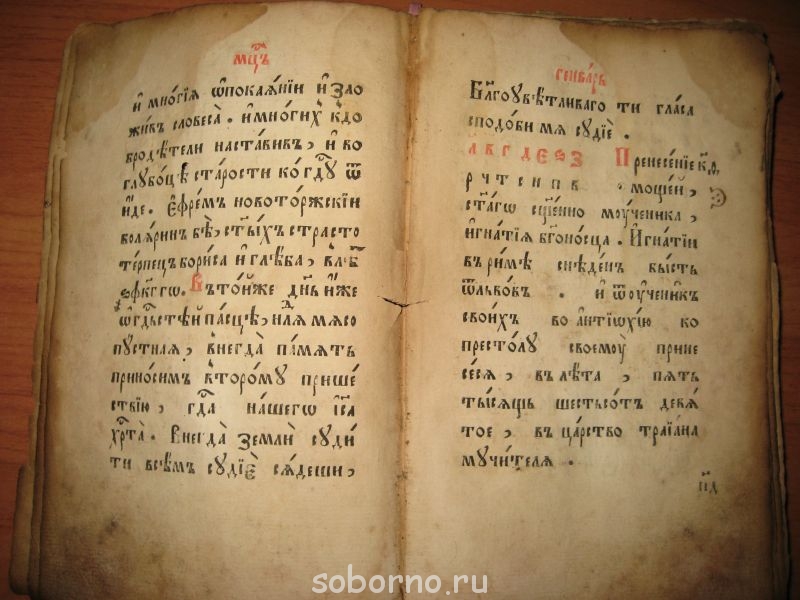 мц҃ъ
и҆ мно́гїѧ ѡ҆покаѧ́нїи и҆ зао
живъ словеса̀ . и҆мно́гих̾ к̾до
бродѣ́тели наста́вив̾ , и҆ во
глꙋбо́цѣ ста́рости ко гдⷭ҇ꙋ ѿ
и҆́де . є҆фре́мъ новото́ржскїи
болѧ́ринъ бѣ̀ , ст҃ы́хъ страсто
те́рпецъ бори́са и҆ глѣ́ба , в̾лѣⷮ
ѕфк҃г гѡ . В̾то́йже дн҃ь и҆́же
ѡ҆ гдⷭ҇ьстѣ́й па́сцѣ , и҆лѝ мѧсо
пꙋстнаѧ , внегда̀ па́мѧть
прино́симъ второ́мꙋ прише́
ствїю , гдⷭ҇а на́шегѡ і҆с҃а
хрⷭ҇та̀ . Внегда̀ земли̑ сꙋди́
ти всѣ́мъ сꙋдїѐ сѧ́деши ,
генва́рь
Бл҃гоꙋвѣ́тливаго ти гла́са
сподо́би мѧ сꙋдїѐ .
а в г д є ѕ з Пренесе́нїе к҃ѳ
р ч т с н п в мощей ,
ст҃а́гѡ сщ҃е́нно моу́ченика ,
и҆гна́тїѧ бг҃оно́сца . И҆гна́тїи
в̾ ри́мѣ снѣ́денъ бы́сть
ѿльво́въ . и҆ ѿоу҆чени́къ
свои́хъ во а҆нтїѡхі́ю ко
престо́лꙋ своемоу̀ прине
се́сѧ , въ лѣ́та , пѧть
ты́сѧщь шестьсо́тъ девѧ́
тое , въ ца́рство траїа́на
мꙋчи́телѧ .
soborno.ru